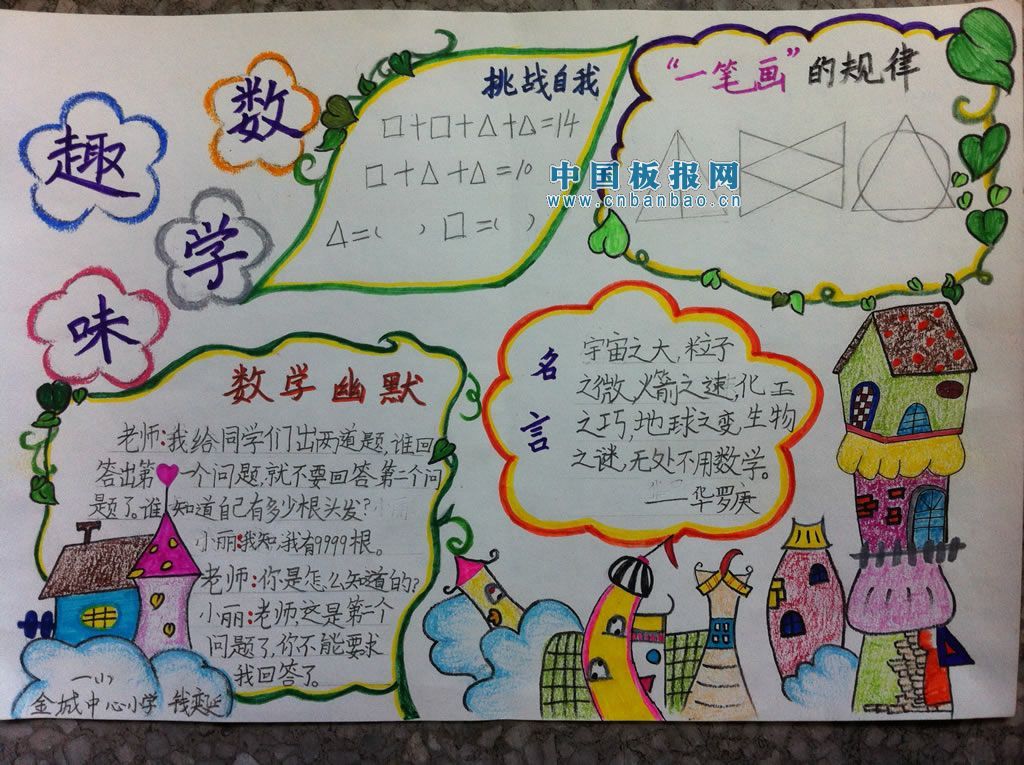 趣
数
学
味
挑战自我
□+□+△+△=14
□+△+△=10
△=( ) □=( )
“一笔画”的规律
中国板报网
www.cnbanbao.cn
数学幽默
老师:我给同学们出两道题,谁回
答出第一个问题,就不要回答第二个问
题了。谁知道自己有多少根头发?
小丽:我知,我有9999根。
老师:你是怎么知道的?
小丽:老师这是第二个
问题了,你不能要求
我回答了。
名言
宇宙之大,粒子
之微,火箭之速,化工
之巧,地球之变,生物
之谜,无处不用数学。
——华罗庚
一(1)
金城中心小学